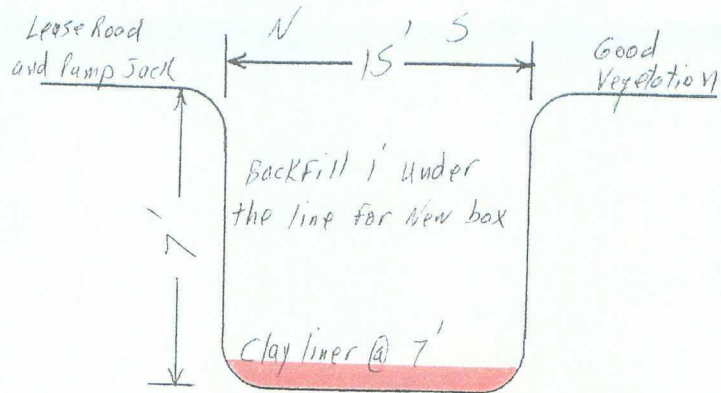 Lease Road
and Pump Jack
N 15' S
Good
Vegetation
7'
Backfill 1' Under
the line for New box
Clay liner @ 7'